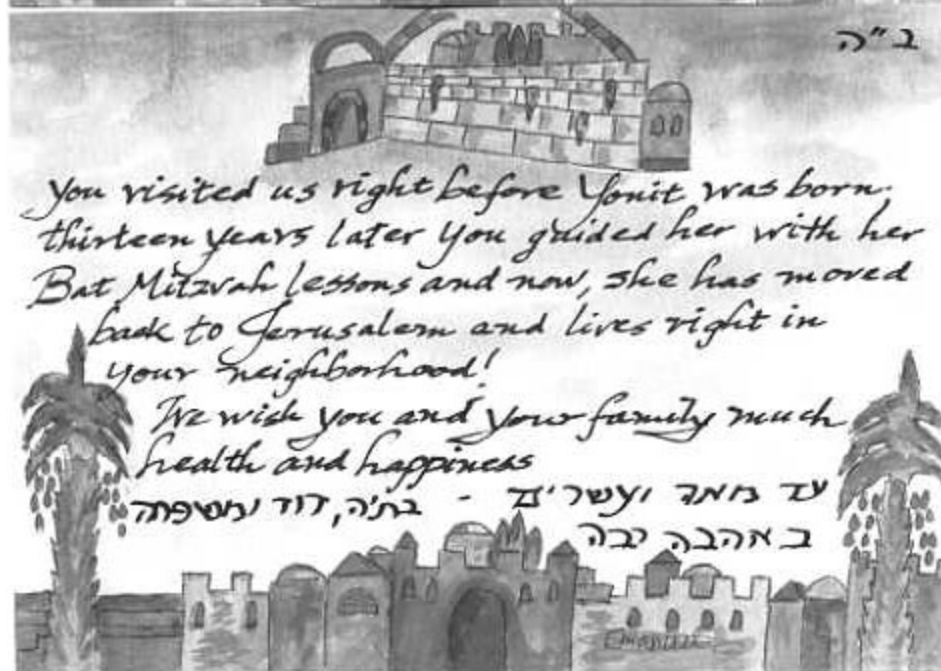 ב"ה
You visited us right before Yonit was born.
thirteen years later you guided her with her
Bat Mitzvah lessons and now, she has moved
back to Jerusalem and lives right in
your neighborhood!
We wish you and your family much
health and happiness
עד מאה ועשרים - בתיה, דוד ומשפחה
באהבה רבה